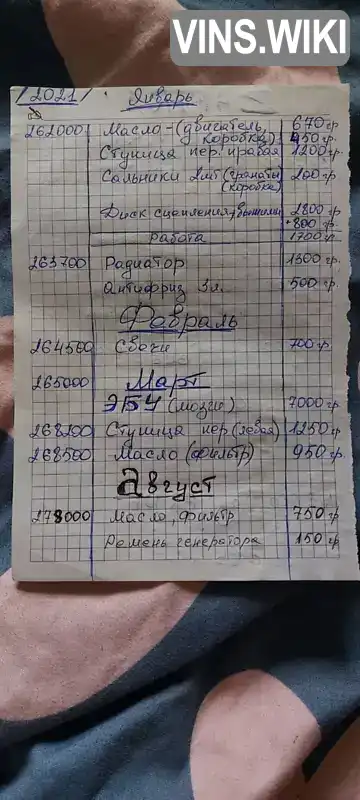 VINS.WIKI
2021 Январь
262000 Масло-(двигатель, 670 гр
коробка) 450 гр
Ступица пер. правая 1200 гр
Сальники 2шт (гранаты 200 гр
(коробка)
Диск сцепления + 2800 гр
800 гр
Работа 1700 гр
263700 Радиатор 1300 гр.
Антифриз 3л. 500 гр
Февраль
264500 Свечи 700 гр
265000 Март
ЭБУ (мозги) 7000 гр
268200 Ступица пер (левая) 1250 гр
268500 Масло (фильтр) 950 гр.
Август
278000 Масло, фильтр 750 гр
Ремень генератора 150 гр